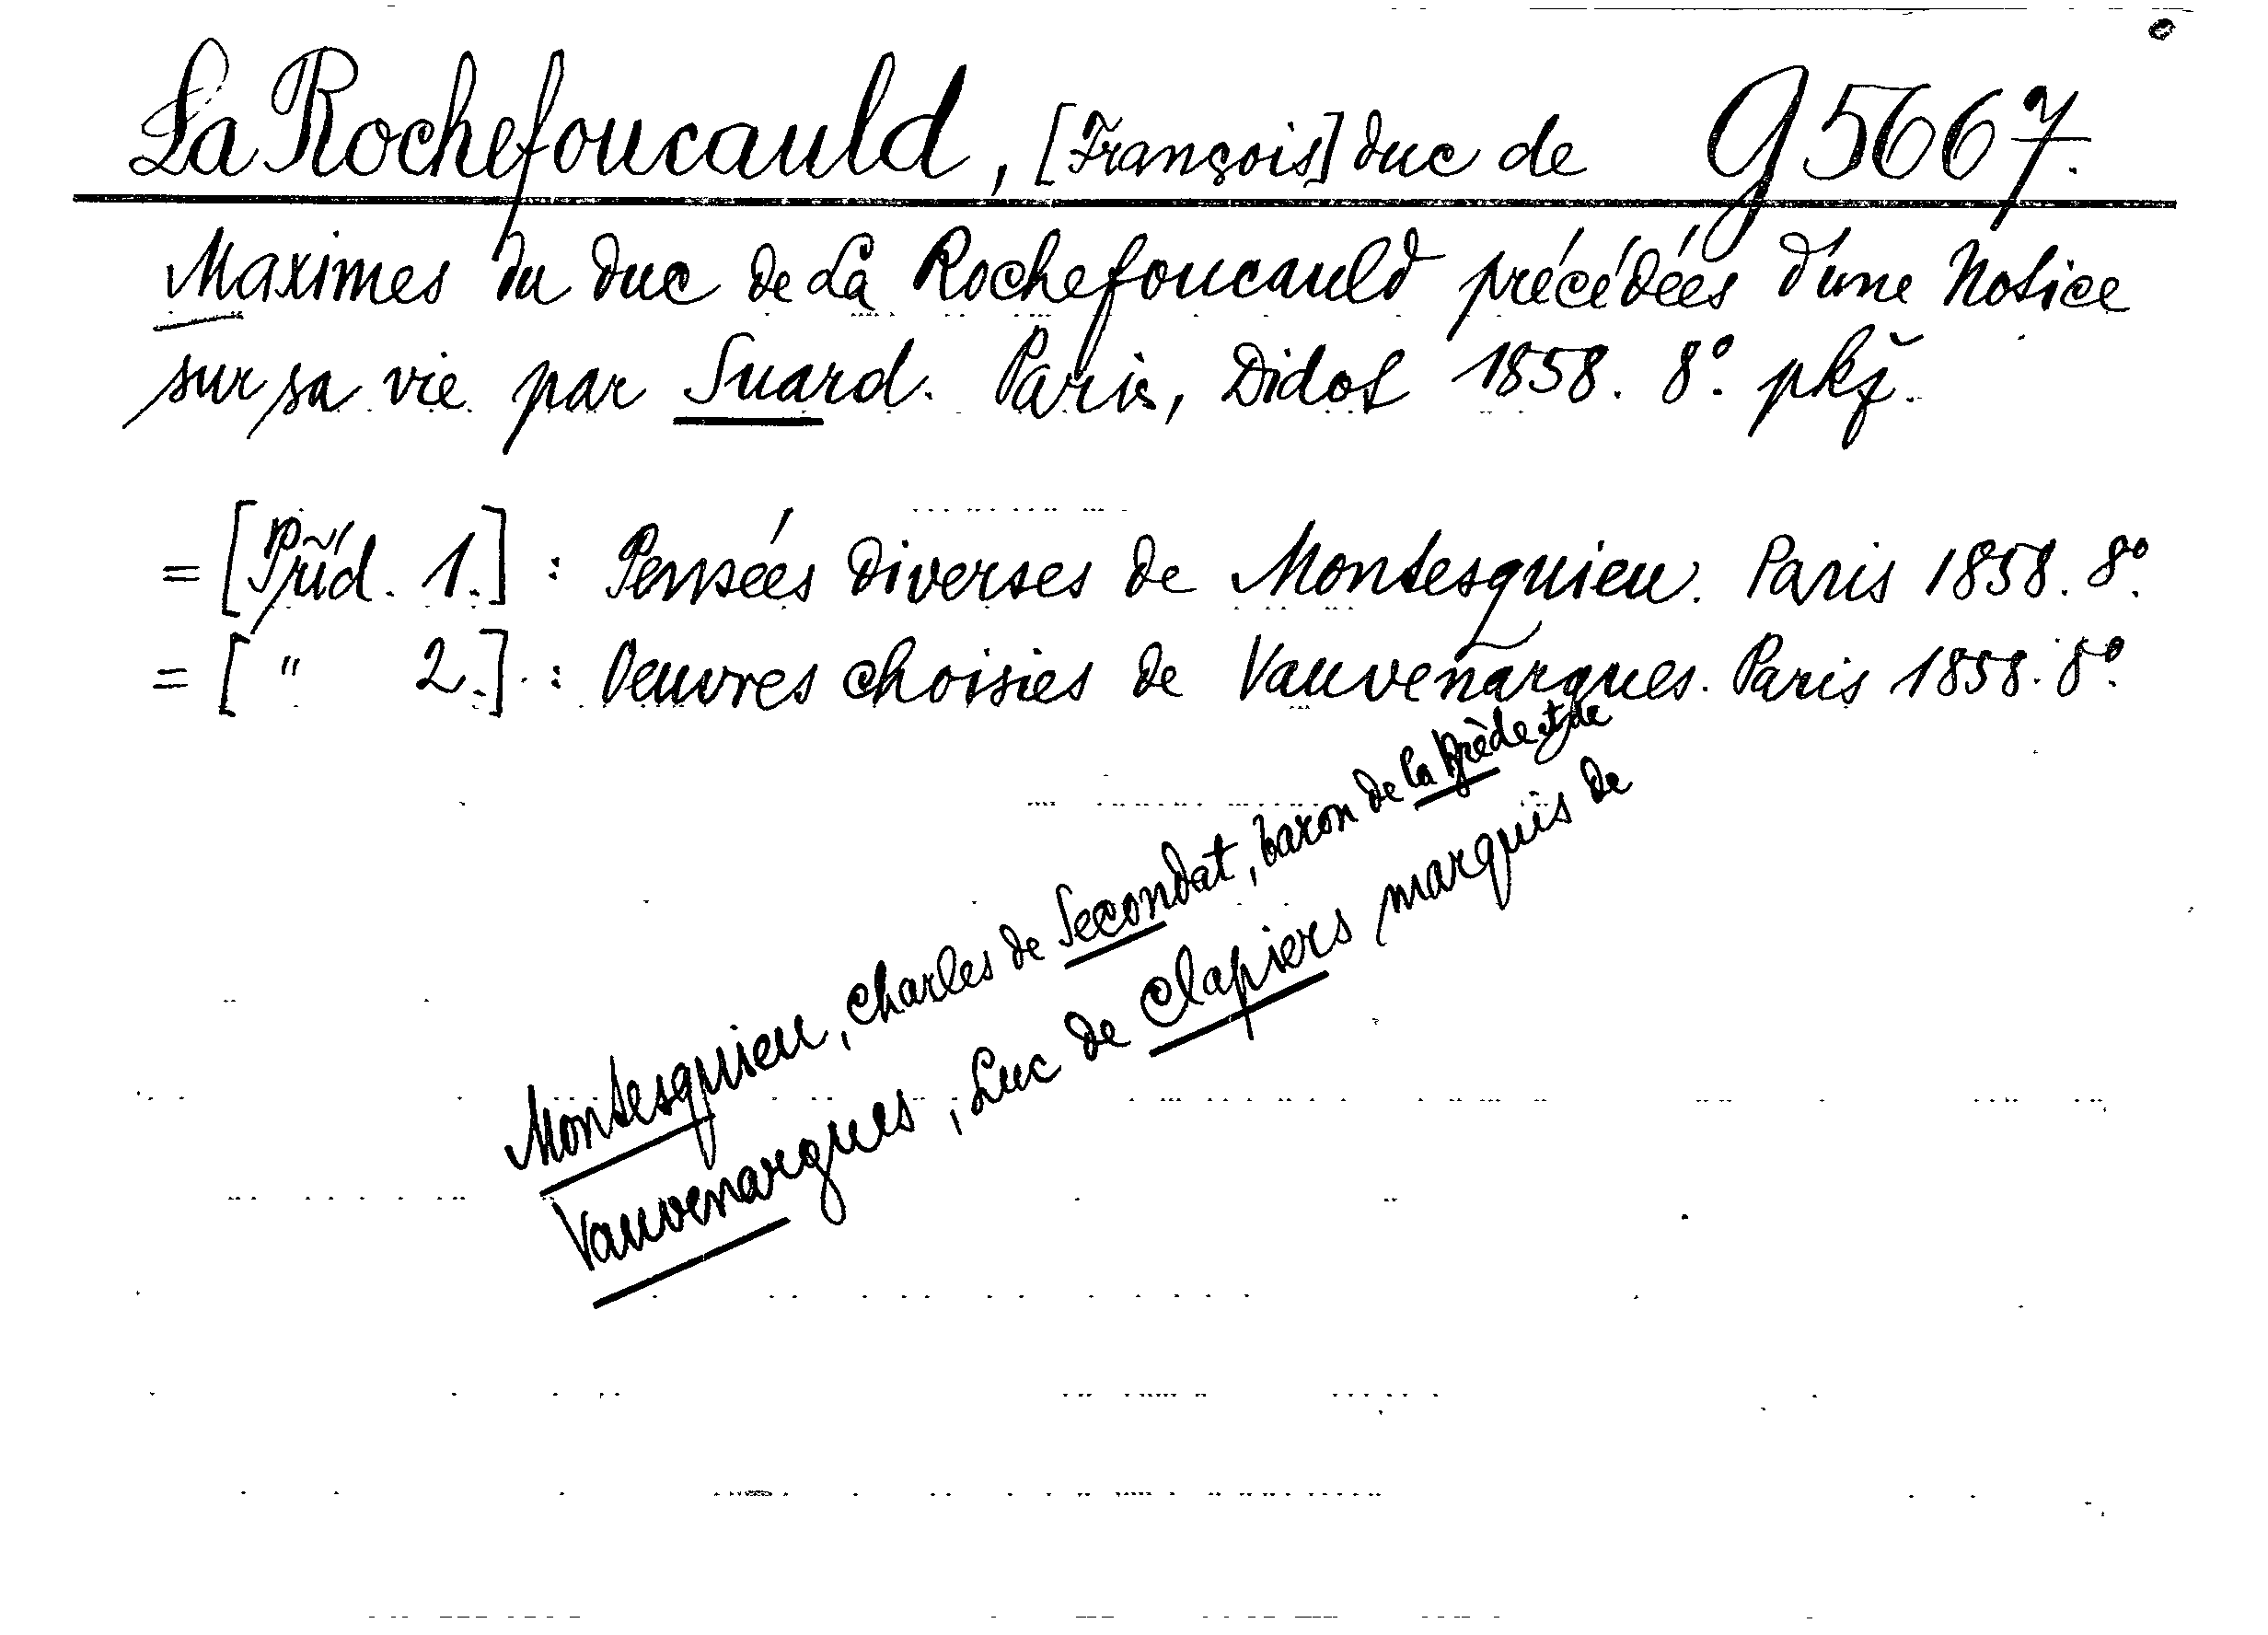 La Rochefoucauld, [François] duc de g 5667.
Maximes du duc de La Rochefoucauld précédées d'une Notice
sur sa vie par Suard. Paris, Didot 1858. 8°. pkž.
= [Příd. 1.] : Pensées diverses de Montesquieu. Paris 1858. 8°.
= [ " 2.] : Oeuvres choisies de Vauvenargues. Paris 1858. 8°.
Montesquieu, Charles de Secondat, baron de la Brède et de
Vauvenargues, Luc de Clapiers marquis de